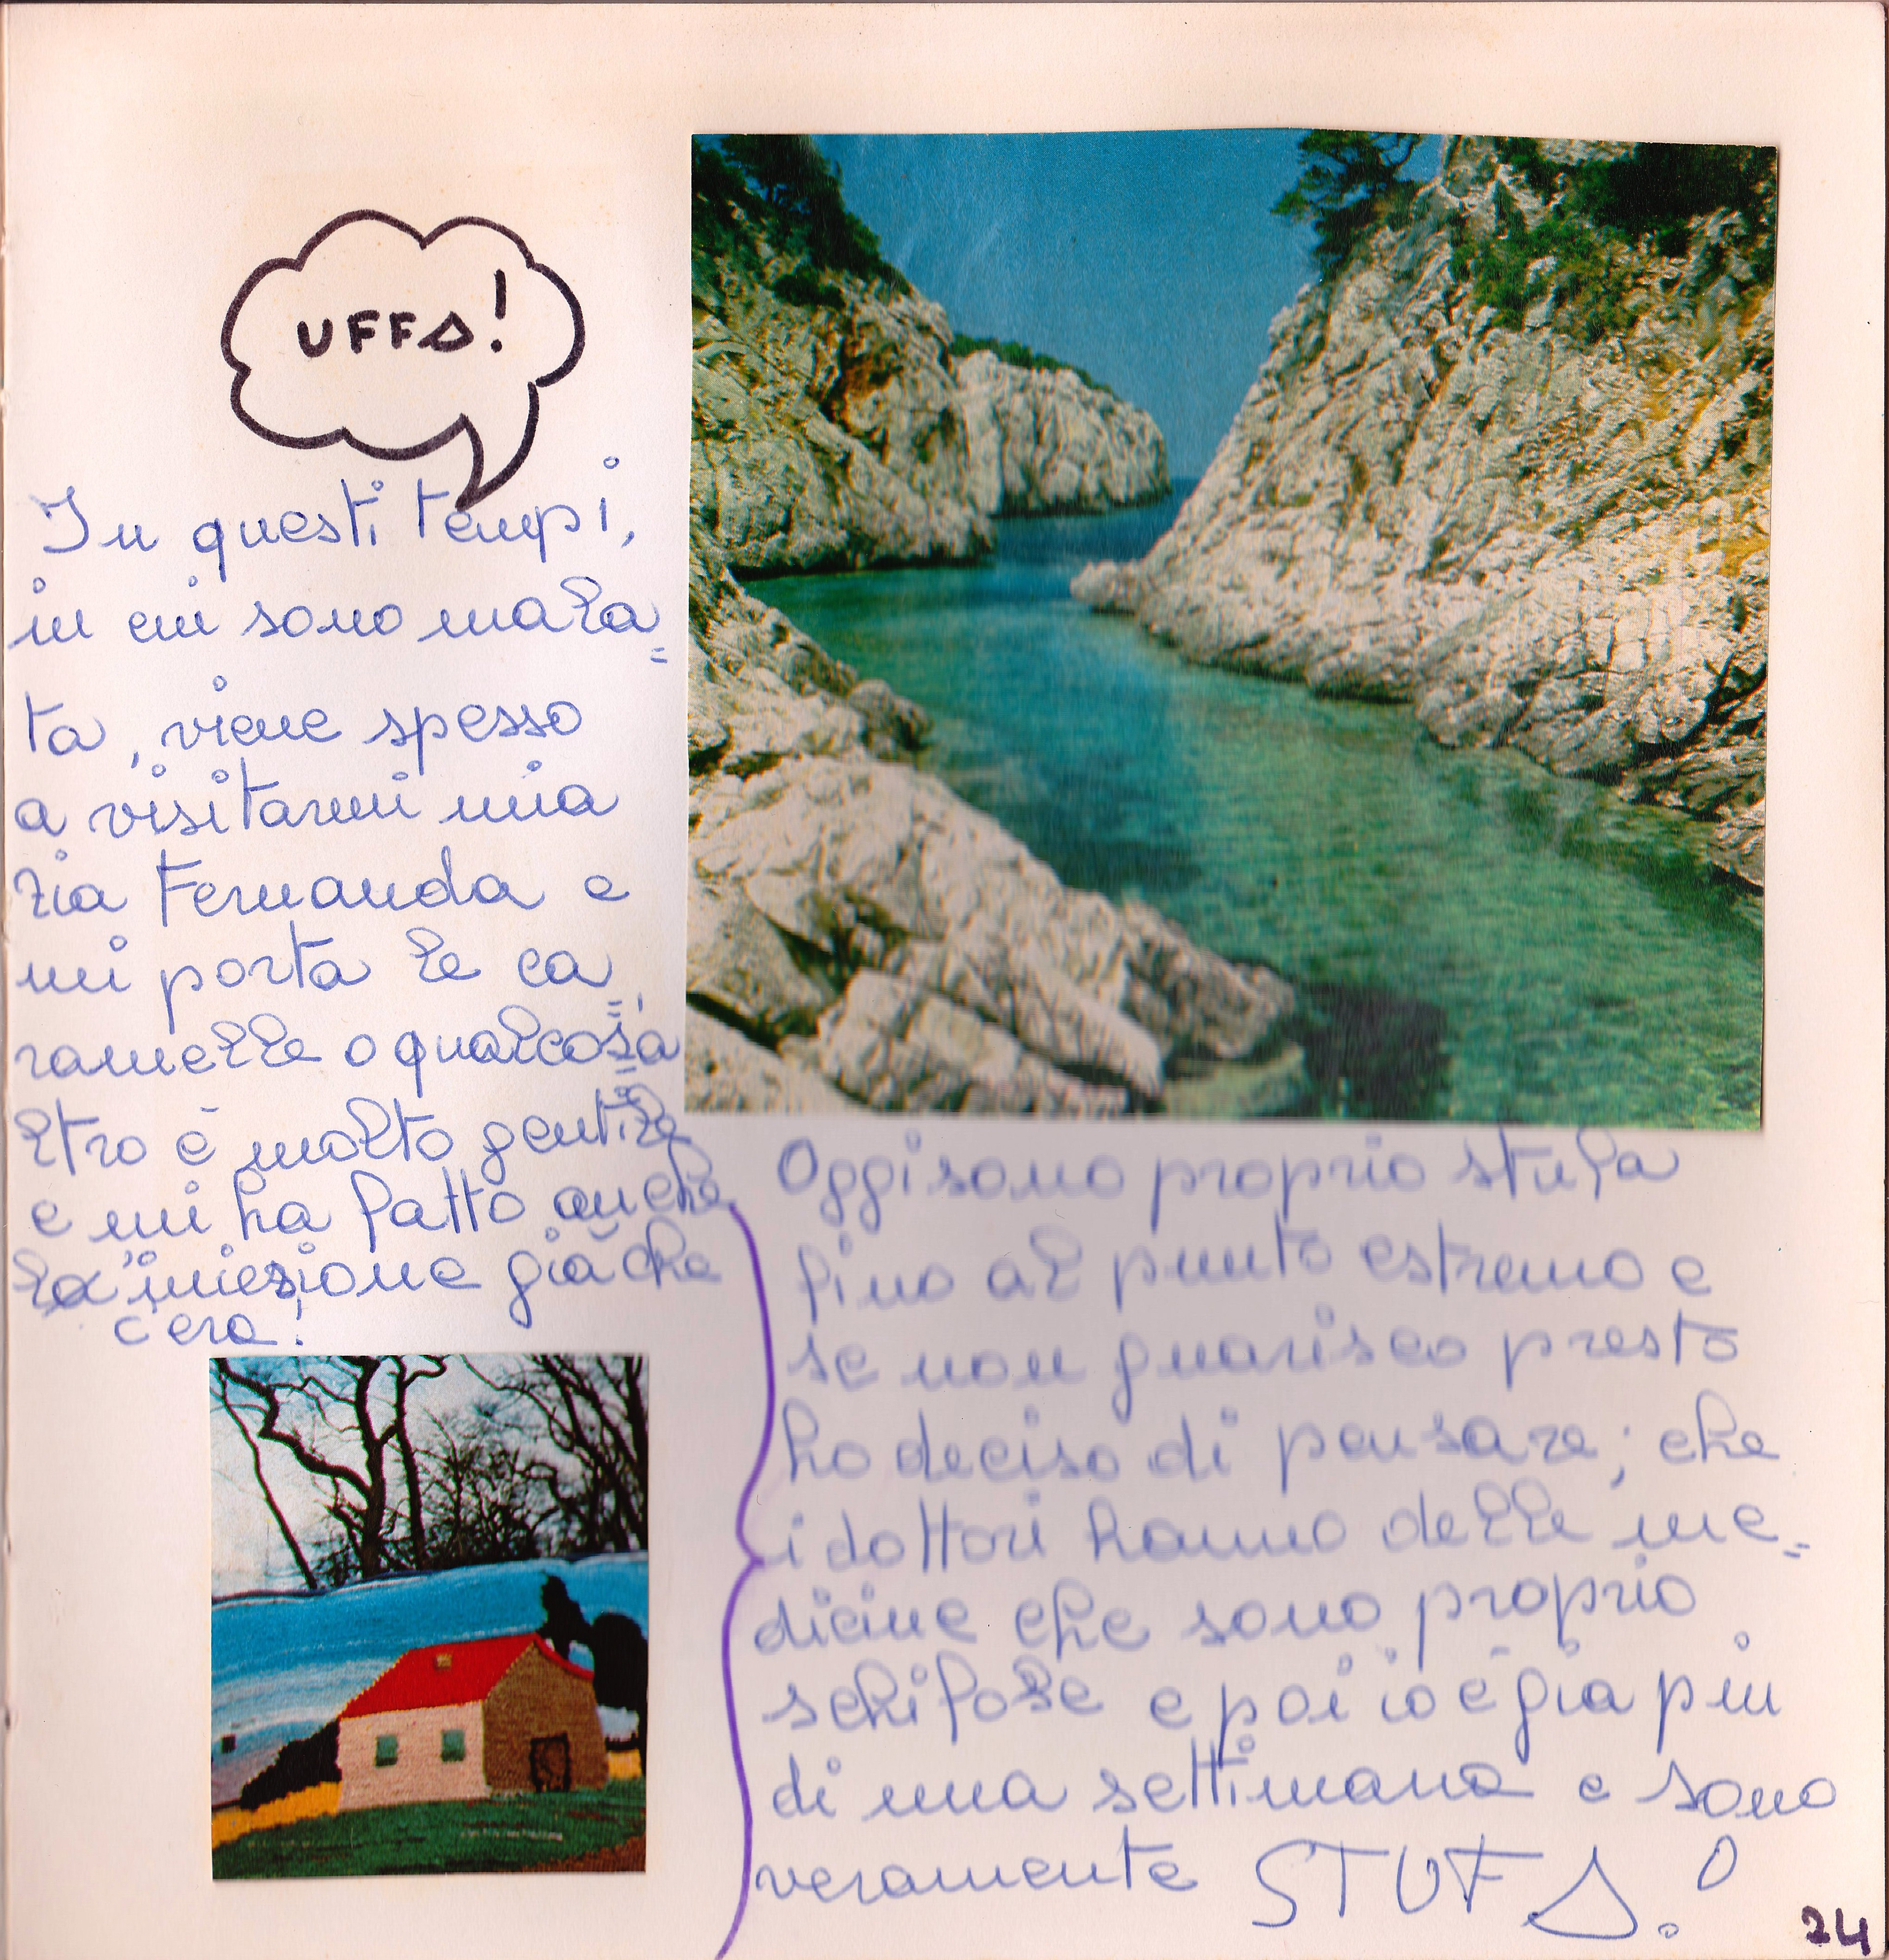 UFFA!
In questi tempi,
in cui sono mala=
ta, viene spesso
a visitarmi mia
zia Fernanda e
mi porta le ca=
ramelle o qualcos'a=
ltro è molto gentile
e mi ha fatto anche
l'iniezione già che
c'era!
Oggi sono proprio stufa
fino al punto estremo e
se non guarisco presto
ho deciso di pensare; che
i dottori hanno delle me=
dicine che sono proprio
schifose e poi io è già più
di una settimana e sono
veramente STUFA!
24